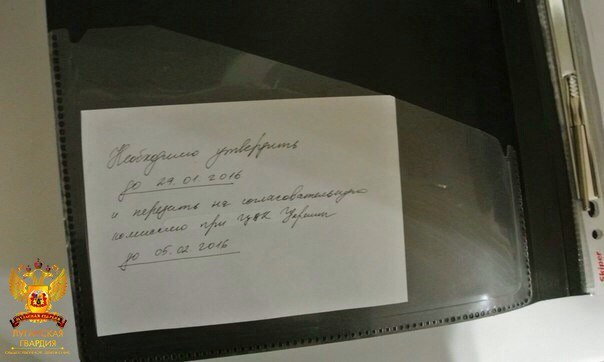 Необходимо утвердить
до 29.01.2016
и передать на согласовательную
комиссию при ЦИК Украины
до 05.02.2016
skiper
ЛУГАНСКАЯ ГВАРДИЯ
ЛУГАНСКАЯ
ГВАРДИЯ